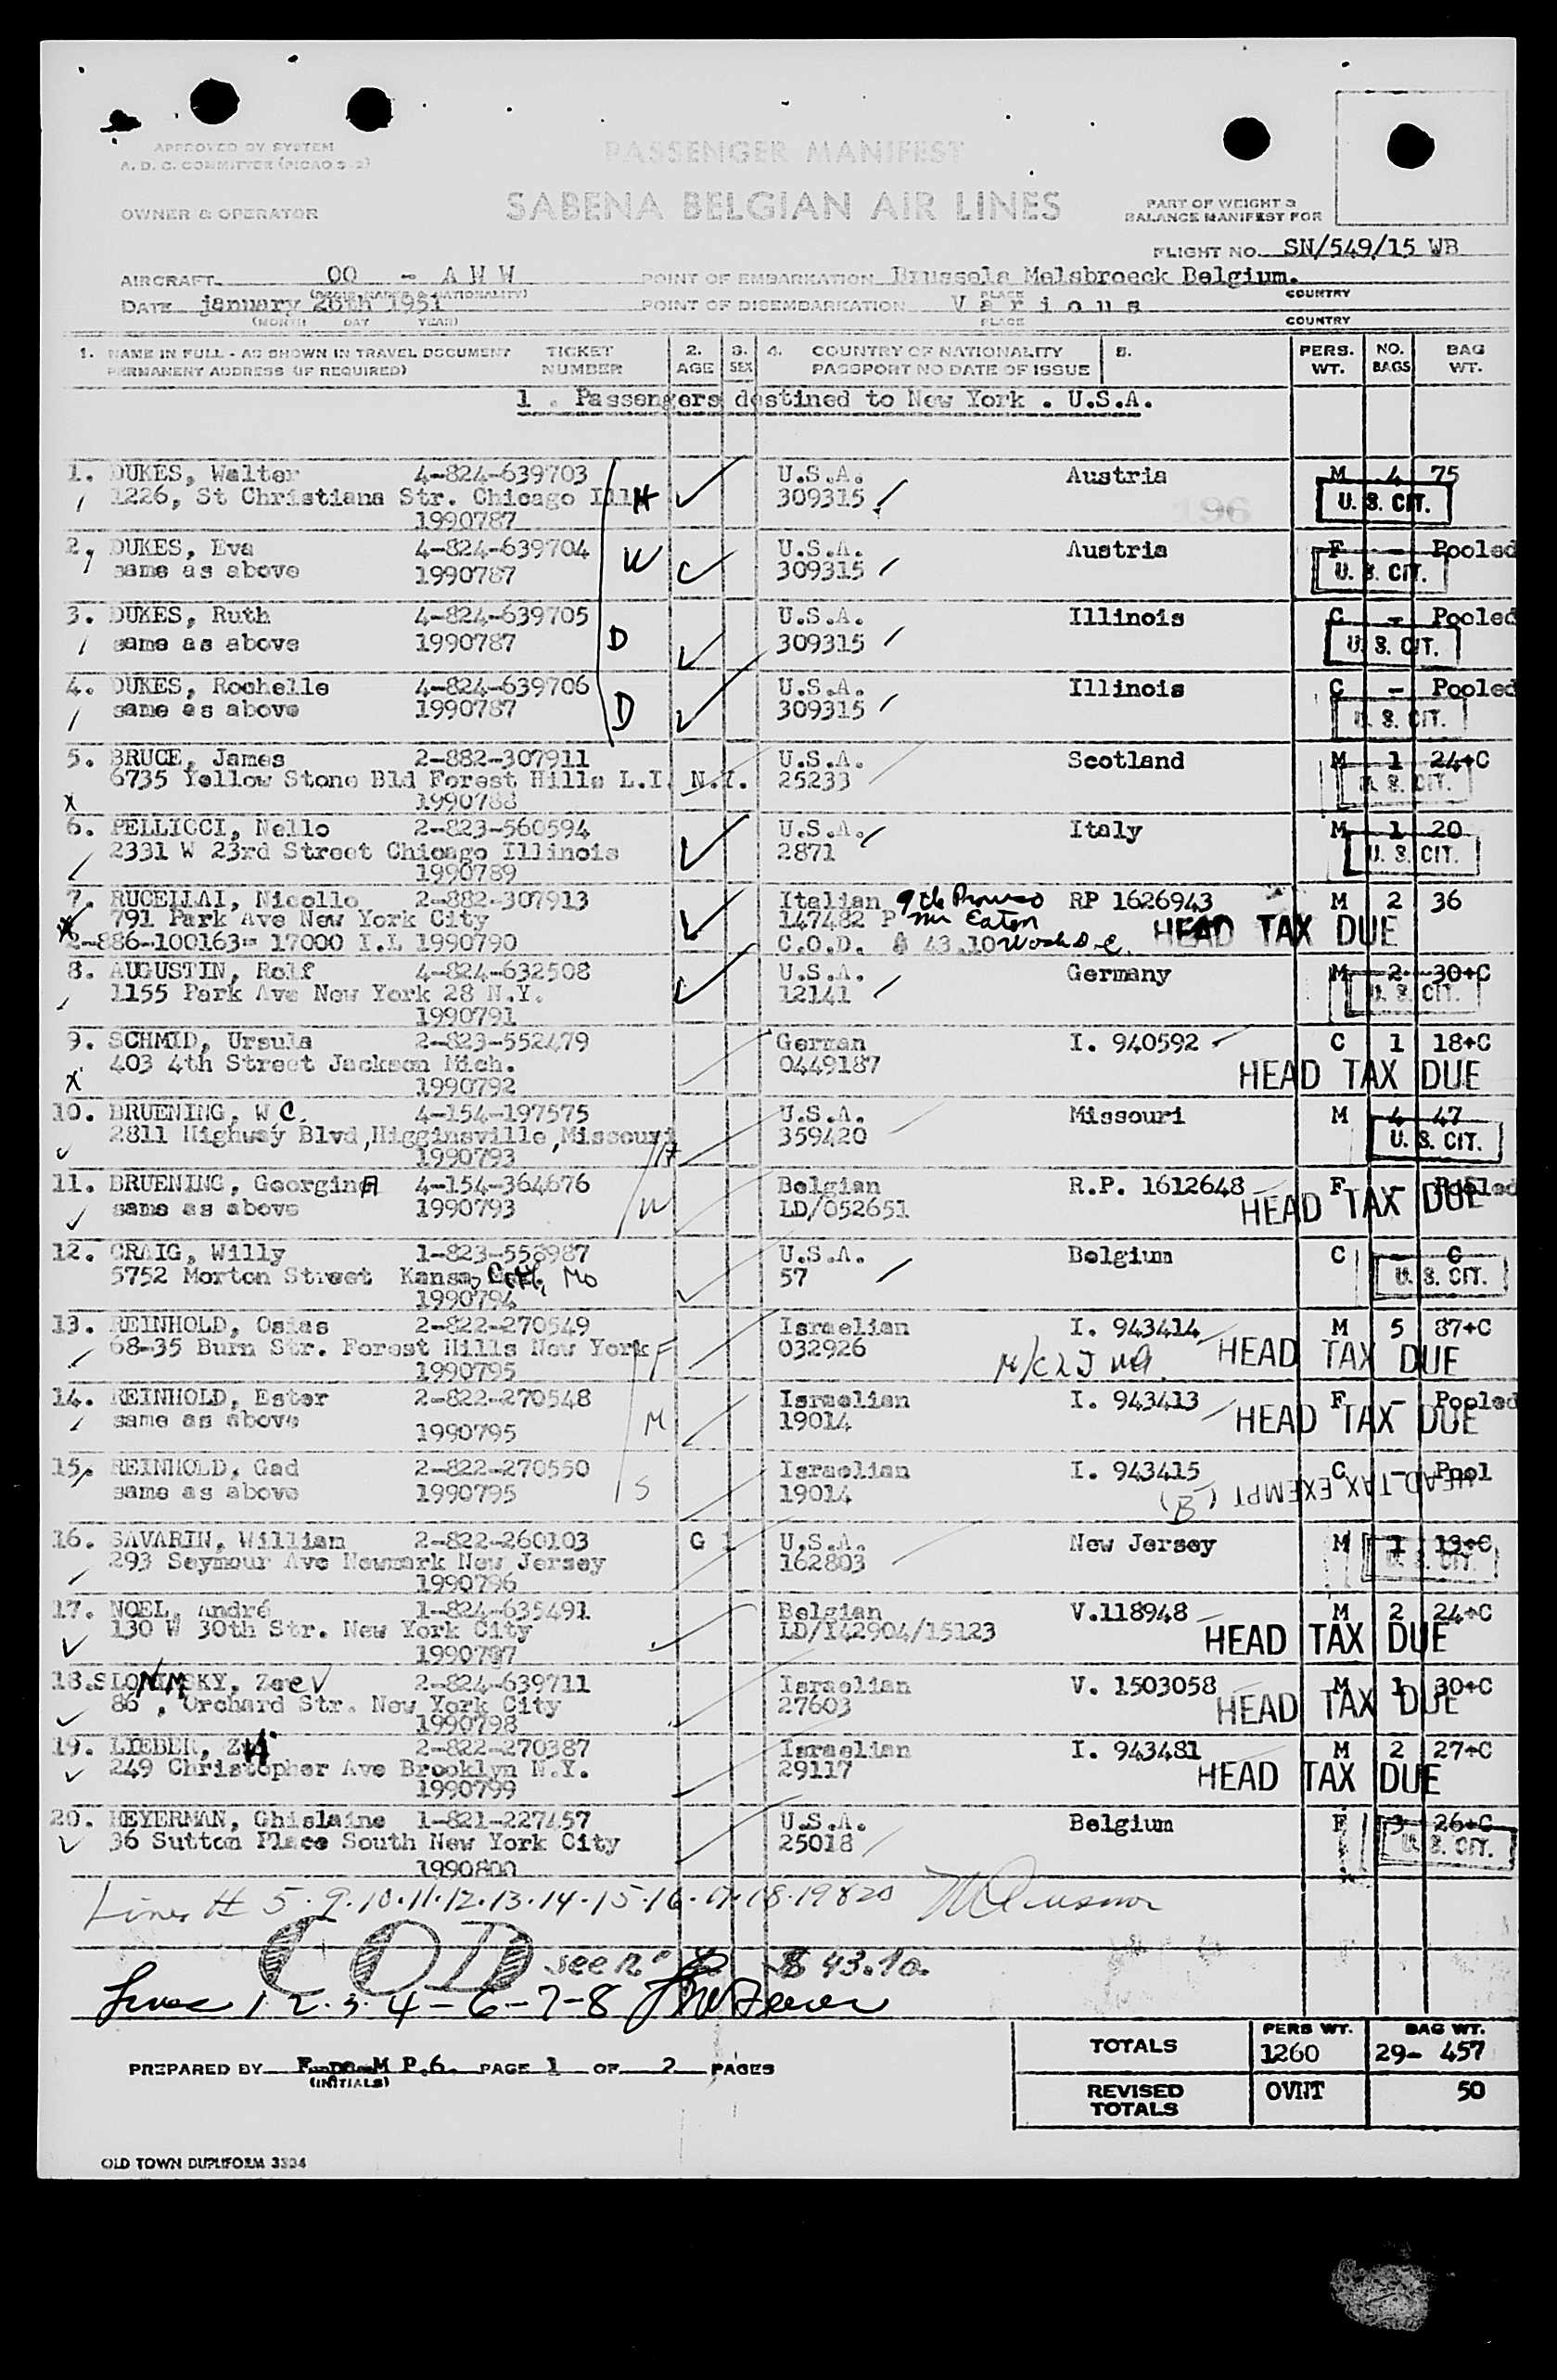 APPROVED BY SYSTEM
A. D. C. COMMITTEE (PICAO S-2)
PASSENGER MANIFEST
OWNER & OPERATOR
SABENA BELGIAN AIR LINES
PART OF WEIGHT &
BALANCE MANIFEST FOR
FLIGHT NO. SN/549/15 WB
AIRCRAFT OO - A W W POINT OF EMBARKATION Brussels Melsbroeck Belgium.
PLACE COUNTRY
DATE january 26th 1951 POINT OF DISEMBARKATION V a r i o u s
(MONTH DAY YEAR) PLACE COUNTRY
1. NAME IN FULL - AS SHOWN IN TRAVEL DOCUMENT TICKET 2. 3. 4. COUNTRY OF NATIONALITY 5. PERS. NO. BAG
PERMANENT ADDRESS (IF REQUIRED) NUMBER AGE SEX PASSPORT NO DATE OF ISSUE WT. BAGS WT.
1 . Passengers destined to New York . U.S.A.
1. DUKES, Walter 4-824-639703 U.S.A. Austria M 4 75
1226, St Christiana Str. Chicago Ill H 309315 U. S. CIT.
1990787 196
2. DUKES, Eva 4-824-639704 W U.S.A. Austria F - Pooled
same as above 1990787 309315 U. S. CIT.
3. DUKES, Ruth 4-824-639705 U.S.A. Illinois C - Pooled
same as above 1990787 D 309315 U. S. CIT.
4. DUKES, Rochelle 4-824-639706 U.S.A. Illinois C - Pooled
same as above 1990787 D 309315 U. S. CIT.
5. BRUCE, James 2-882-307911 U.S.A. Scotland M 1 24+C
6735 Yellow Stone Bld Forest Hills L.I. N.Y. 25233 U. S. CIT.
x 1990788
6. PELLICCI, Nello 2-823-560594 U.S.A. Italy M 1 20
2331 W 23rd Street Chicago Illinois 2871 U. S. CIT.
1990789
7. RUCELLAI, Nicollo 2-882-307913 Italian 9th Proviso RP 1626943 M 2 36
791 Park Ave New York City 147482 P Mr Eaton HEAD TAX DUE
2-886-100163= 17000 I.L 1990790 C.O.D. $ 43.10 Wash D.C.
8. AUGUSTIN, Rolf 4-824-632508 U.S.A. Germany M 2 30+C
1155 Park Ave New York 28 N.Y. 12141 U. S. CIT.
1990791
9. SCHMID, Ursula 2-823-552479 German I. 940592 C 1 18+C
403 4th Street Jackson Mich. 0449187 HEAD TAX DUE
x 1990792
10. BRUENING, W C. 4-154-197575 U.S.A. Missouri M 4 47
2811 Highway Blvd,Higginsville,Missouri 359420 U. S. CIT.
1990793 H
11. BRUENING, GeorginA 4-154-364676 Belgian R.P. 1612648 F - Pooled
same as above 1990793 W LD/052651 HEAD TAX DUE
12. CRAIG, Willy 1-823-558987 U.S.A. Belgium C - C
5752 Morton Street Kansas City, Mo 57 U. S. CIT.
1990794
13. REINHOLD, Osias 2-822-270549 Israelian I. 943414 M 5 87+C
68-35 Burn Str. Forest Hills New York F 032926 HEAD TAX DUE
1990795
14. REINHOLD, Ester 2-822-270548 Israelian I. 943413 F - Pooled
same as above 1990795 M 19014 HEAD TAX DUE
15. REINHOLD, Gad 2-822-270550 Israelian I. 943415 C - Pool
same as above 1990795 S 19014 HEAD TAX EXEMPT (B)
16. SAVARIN, Willian 2-822-260103 G 1 U.S.A. New Jersey M 1 13+C
293 Seymour Ave Newmark New Jersey 162803 U. S. CIT.
1990796
17. NOEL, André 1-824-635491 Belgian V.118948 M 2 24+C
130 W 30th Str. New York City LD/142904/15123 HEAD TAX DUE
1990797
18. SLONIMSKY, Zeev 2-824-639711 Israelian V. 1503058 M 1 30+C
86 , Orchard Str. New York City 27603 HEAD TAX DUE
1990798
19. LIEBER, Zvi 2-822-270387 Israelian I. 943481 M 2 27+C
249 Christopher Ave Brooklyn N.Y. 29117 HEAD TAX DUE
1990799
20. HEYERMAN, Ghislaine 1-821-227457 U.S.A. Belgium F 3 26+C
36 Sutton Place South New York City 25018 U. S. CIT.
1990800
Lines # 5.9.10.11.12.13.14.15.16.17.18.19 & 20
COD see n° 7 $ 43.10.
Lines 1.2.3.4-6-7-8
TOTALS PERS WT. 1260 BAG WT. 29- 457
PREPARED BY P.6. PAGE 1 OF 2 PAGES
(INITIALS)
REVISED TOTALS OVNT 50
OLD TOWN DUPLIFORM 3334